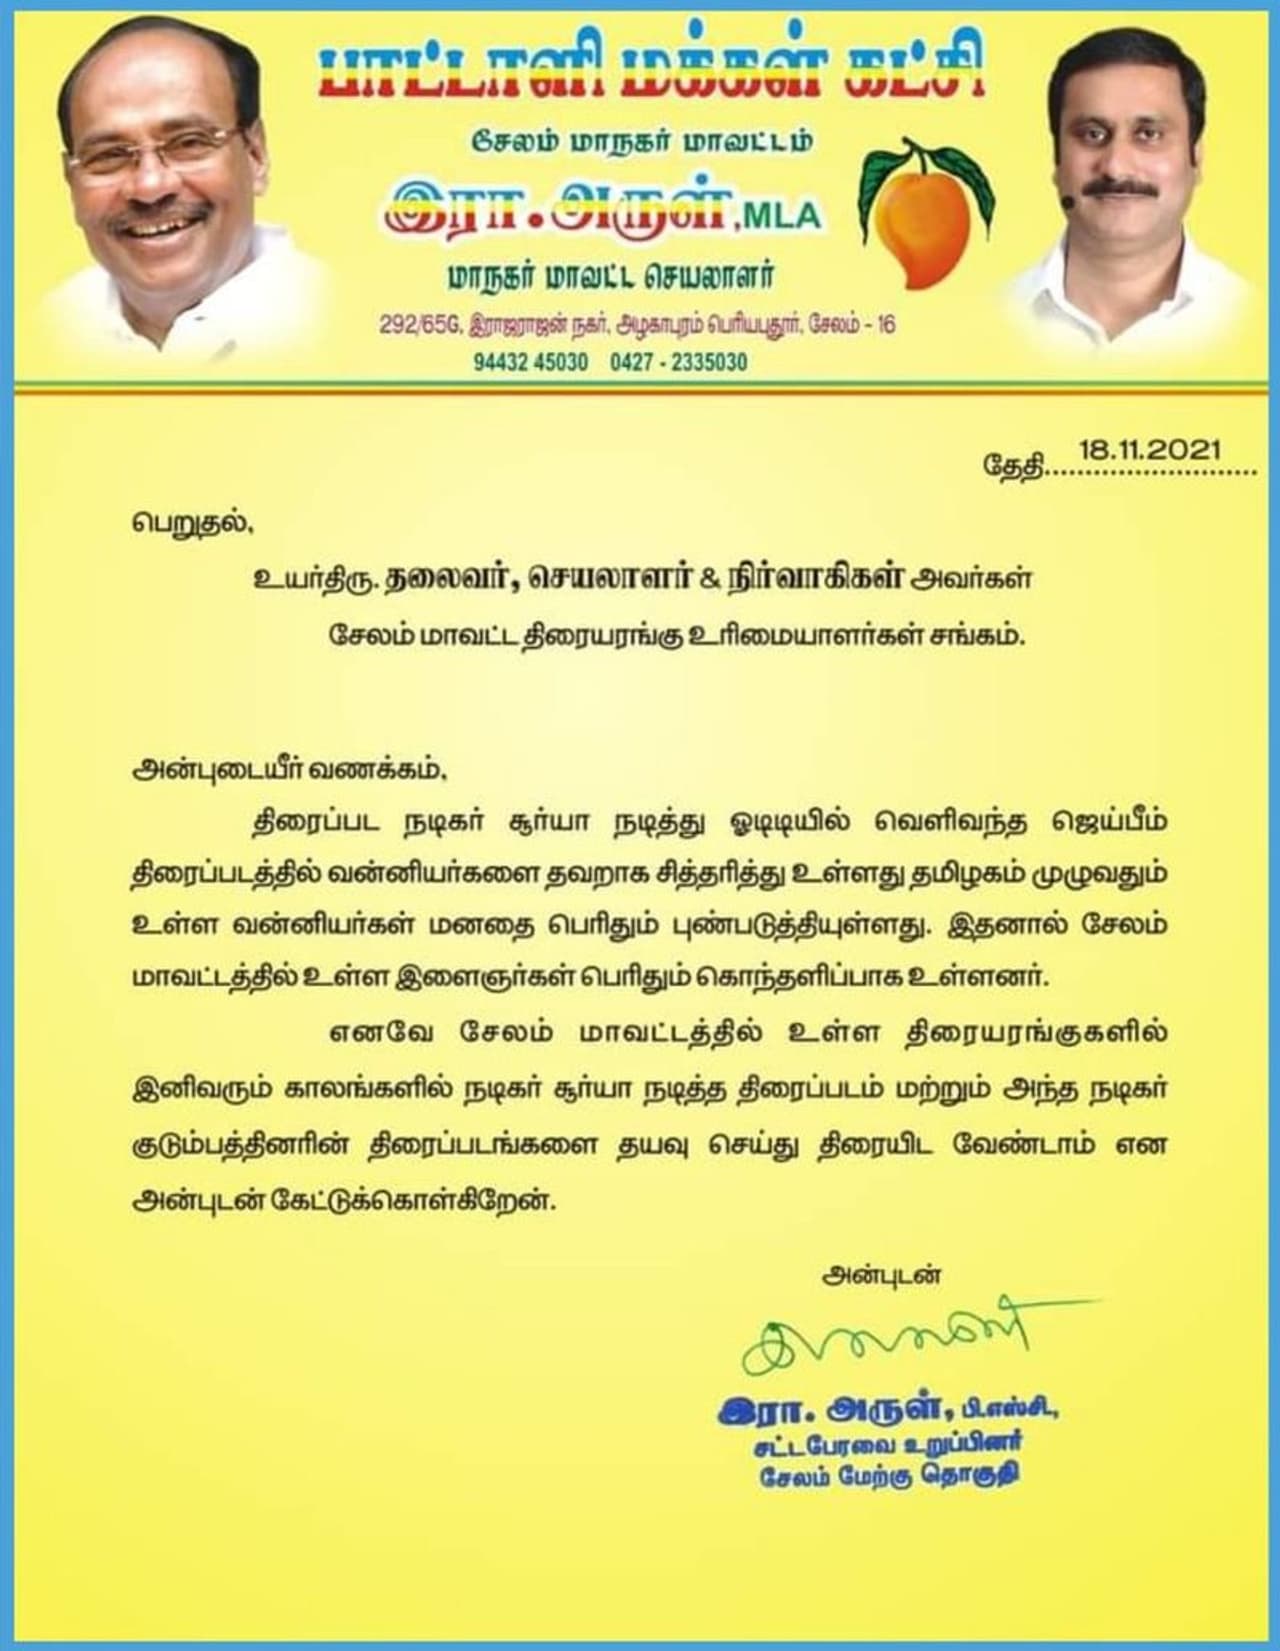 பாட்டாளி மக்கள் கட்சி
சேலம் மாநகர் மாவட்டம்
இரா. அருள், MLA
மாநகர் மாவட்ட செயலாளர்
292/65G, இராஜராஜன் நகர், அழகாபுரம் பெரியபுதூர், சேலம் - 16
94432 45030 0427 - 2335030
தேதி.... 18.11.2021
பெறுதல்,
உயர்திரு. தலைவர், செயலாளர் & நிர்வாகிகள் அவர்கள்
சேலம் மாவட்ட திரையரங்கு உரிமையாளர்கள் சங்கம்.
அன்புடையீர் வணக்கம்,
திரைப்பட நடிகர் சூர்யா நடித்து ஓடிடியில் வெளிவந்த ஜெய்பீம்
திரைப்படத்தில் வன்னியர்களை தவறாக சித்தரித்து உள்ளது தமிழகம் முழுவதும்
உள்ள வன்னியர்கள் மனதை பெரிதும் புண்படுத்தியுள்ளது. இதனால் சேலம்
மாவட்டத்தில் உள்ள இளைஞர்கள் பெரிதும் கொந்தளிப்பாக உள்ளனர்.
எனவே சேலம் மாவட்டத்தில் உள்ள திரையரங்குகளில்
இனிவரும் காலங்களில் நடிகர் சூர்யா நடித்த திரைப்படம் மற்றும் அந்த நடிகர்
குடும்பத்தினரின் திரைப்படங்களை தயவு செய்து திரையிட வேண்டாம் என
அன்புடன் கேட்டுக்கொள்கிறேன்.
அன்புடன்
இரா. அருள், பி.எஸ்சி.,
சட்டபேரவை உறுப்பினர்
சேலம் மேற்கு தொகுதி